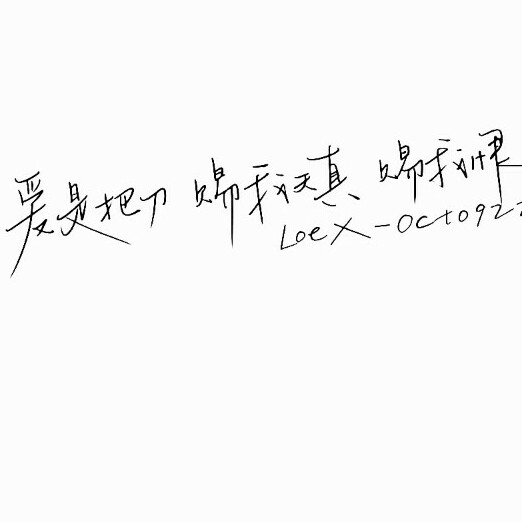 爱是把刀 赐我天真 赐我
LoeX-Oct092